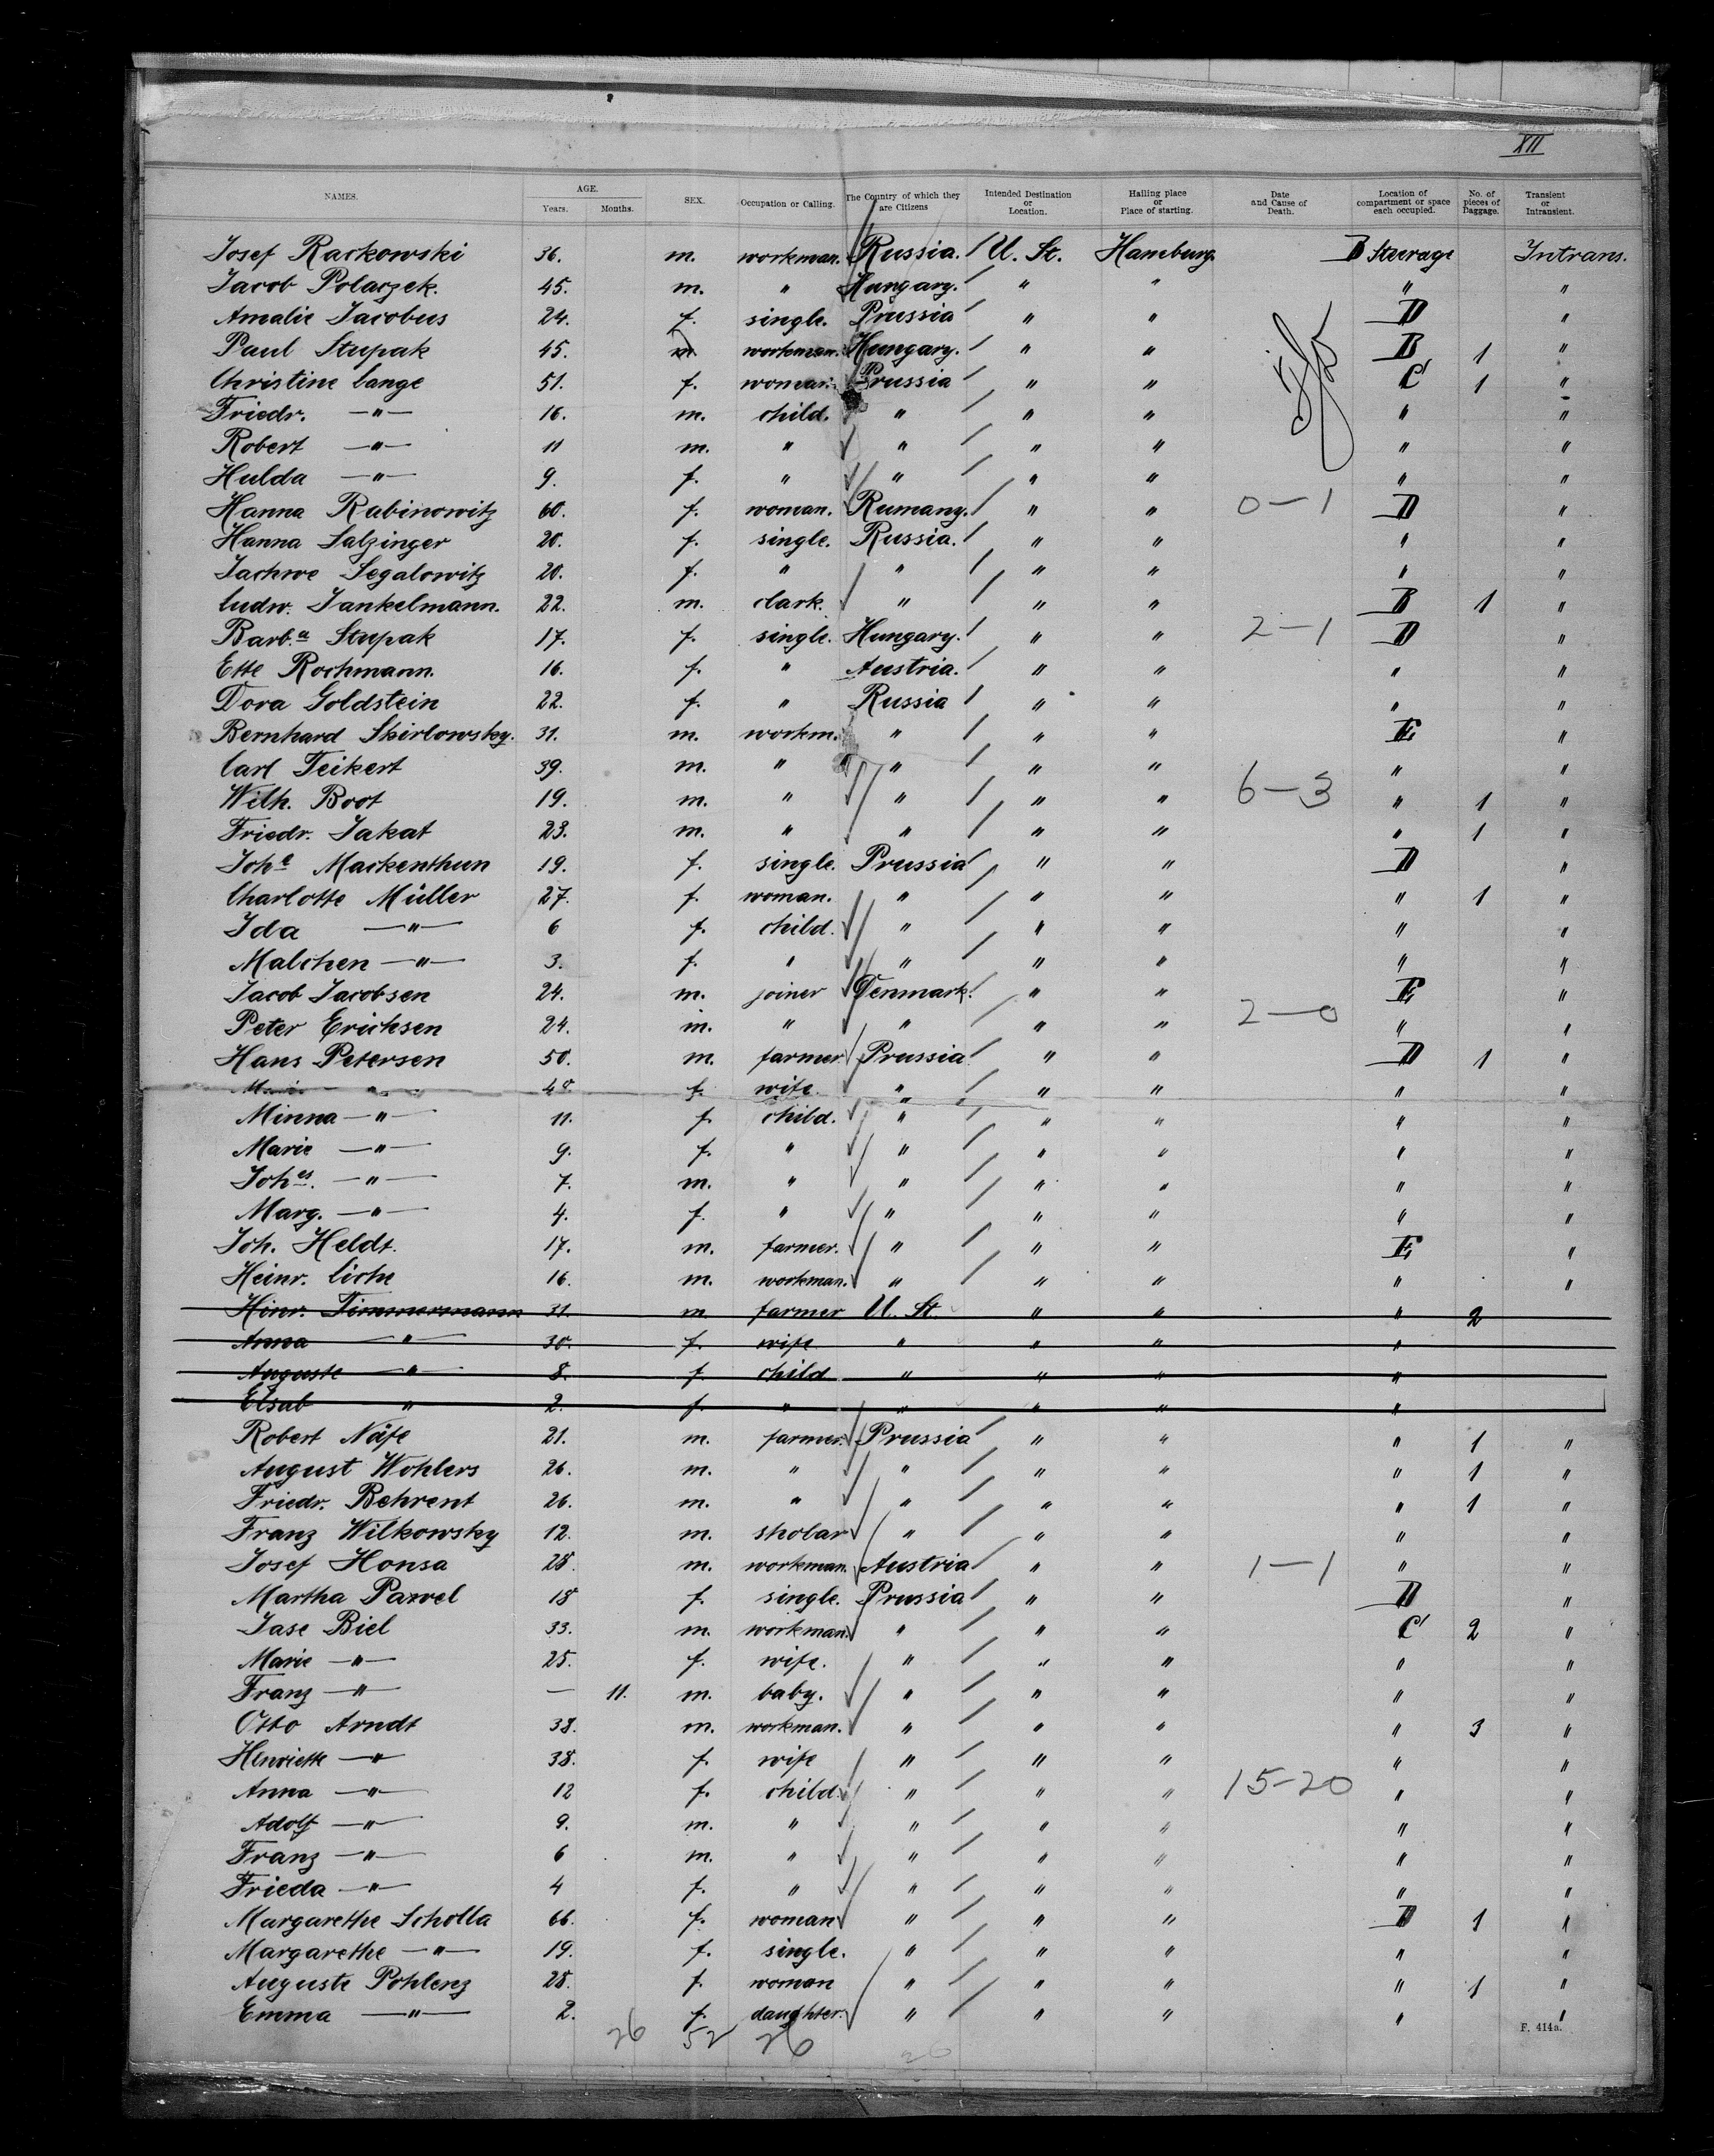 XII
NAMES. AGE. Years. Months. SEX. Occupation or Calling. The Country of which they are Citizens Intended Destination or Location. Hailing place or Place of starting. Date and Cause of Death. Location of compartment or space each occupied. No. of pieces of Baggage. Transient or Intransient.
Josef Rackowski 36. m. workman. Russia. U. St. Hamburg. B Steerage Intrans.
Jacob Polaczek. 45. m. " Hungary. " " " "
Amalie Jacobus 24. f. single. Prussia " " D "
Paul Stupak 45. m. workman. Hungary. " " B 1 "
Christine Lange 51. f. woman. Prussia " " C 1 "
Friedr. —"— 16. m. child. " " " " "
Robert —"— 11 m. " " " " " "
Hulda —"— 9. f. " " " " " "
Hanna Rabinowitz 60. f. woman. Rumany. " " 0-1 D "
Hanna Salzinger 20. f. single. Russia. " " " "
Jachwe Segalowitz 20. f. " " " " " "
Ludw. Jankelmann. 22. m. clark. " " " B 1 "
Barb.a Stupak 17. f. single. Hungary. " " 2-1 D "
Ette Rochmann. 16. f. " Austria. " " " "
Dora Goldstein 22. f. " Russia " " " "
Bernhard Skirlowsky. 31. m. workm. " " " E "
Carl Teikert 39. m. " " " " " "
Wilh. Boot 19. m. " " " " 6-3 " 1 "
Friedr. Jakat 23. m. " " " " " 1 "
Joha Mackenthun 19. f. single. Prussia " " D "
Charlotte Müller 27. f. woman. " " " " 1 "
Ida —"— 6 f. child. " " " " "
Malchen —"— 3. f. " " " " " "
Jacob Jacobsen 24. m. joiner Denmark. " " E "
Peter Erichsen 24. m. " " " " 2-0 " "
Hans Petersen 50. m. farmer Prussia " " D 1 "
" 40. f. wife. " " " " "
Minna —"— 11. f. child. " " " " "
Marie —"— 9. f. " " " " " "
Johes. —"— 7. m. " " " " " "
Marg. —"— 4. f. " " " " " "
Joh. Heldt. 17. m. farmer. " " " E "
Heinr. Liche 16. m. workman. " " " " "
Hinr. Timmermann 31. m. farmer U. St. " " " 2
Anna —"— 30. f. wife " " " "
Auguste —"— 8. f. child " " " "
Elsab " 2. f. " " " " "
Robert Näfe 21. m. farmer. Prussia " " " 1 "
August Wohlers 26. m. " " " " " 1 "
Friedr. Behrent 26. m. " " " " " 1 "
Franz Wilkowsky 12. m. sholar " " " " "
Josef Honsa 28. m. workman. Austria " " 1-1 " "
Martha Pawel 18 f. single. Prussia " " D "
Jase Biel 33. m. workman. " " " C 2 "
Marie —"— 25. f. wife. " " " " "
Franz —"— — 11. m. baby. " " " " "
Otto Arndt 38. m. workman. " " " " 3 "
Henriette —"— 38. f. wife " " " " "
Anna —"— 12 f. child. " " " 15-20 " "
Adolf —"— 9. m. " " " " " "
Franz —"— 6 m. " " " " " "
Frieda —"— 4 f. " " " " " "
Margarethe Scholla 66. f. woman " " " D 1 "
Margarethe —"— 19. f. single. " " " " "
Auguste Pohlenz 28. f. woman " " " " 1 "
Emma —"— 2. f. daughter. " " " " "
26 52 26 26
F. 414a.